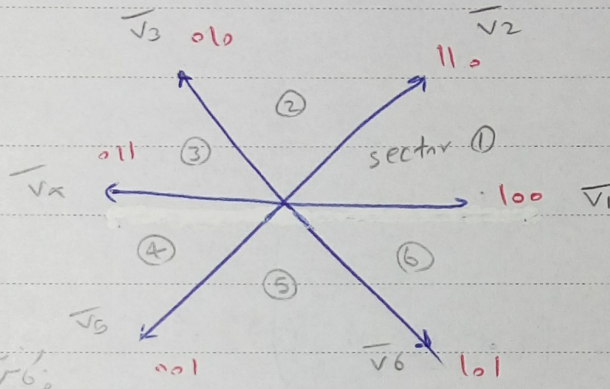 V̅3 010
V̅2
110
②
③
sector ①
011
V̅α
100
V̅1
④
⑤
⑥
V̅5
V̅6
001
101